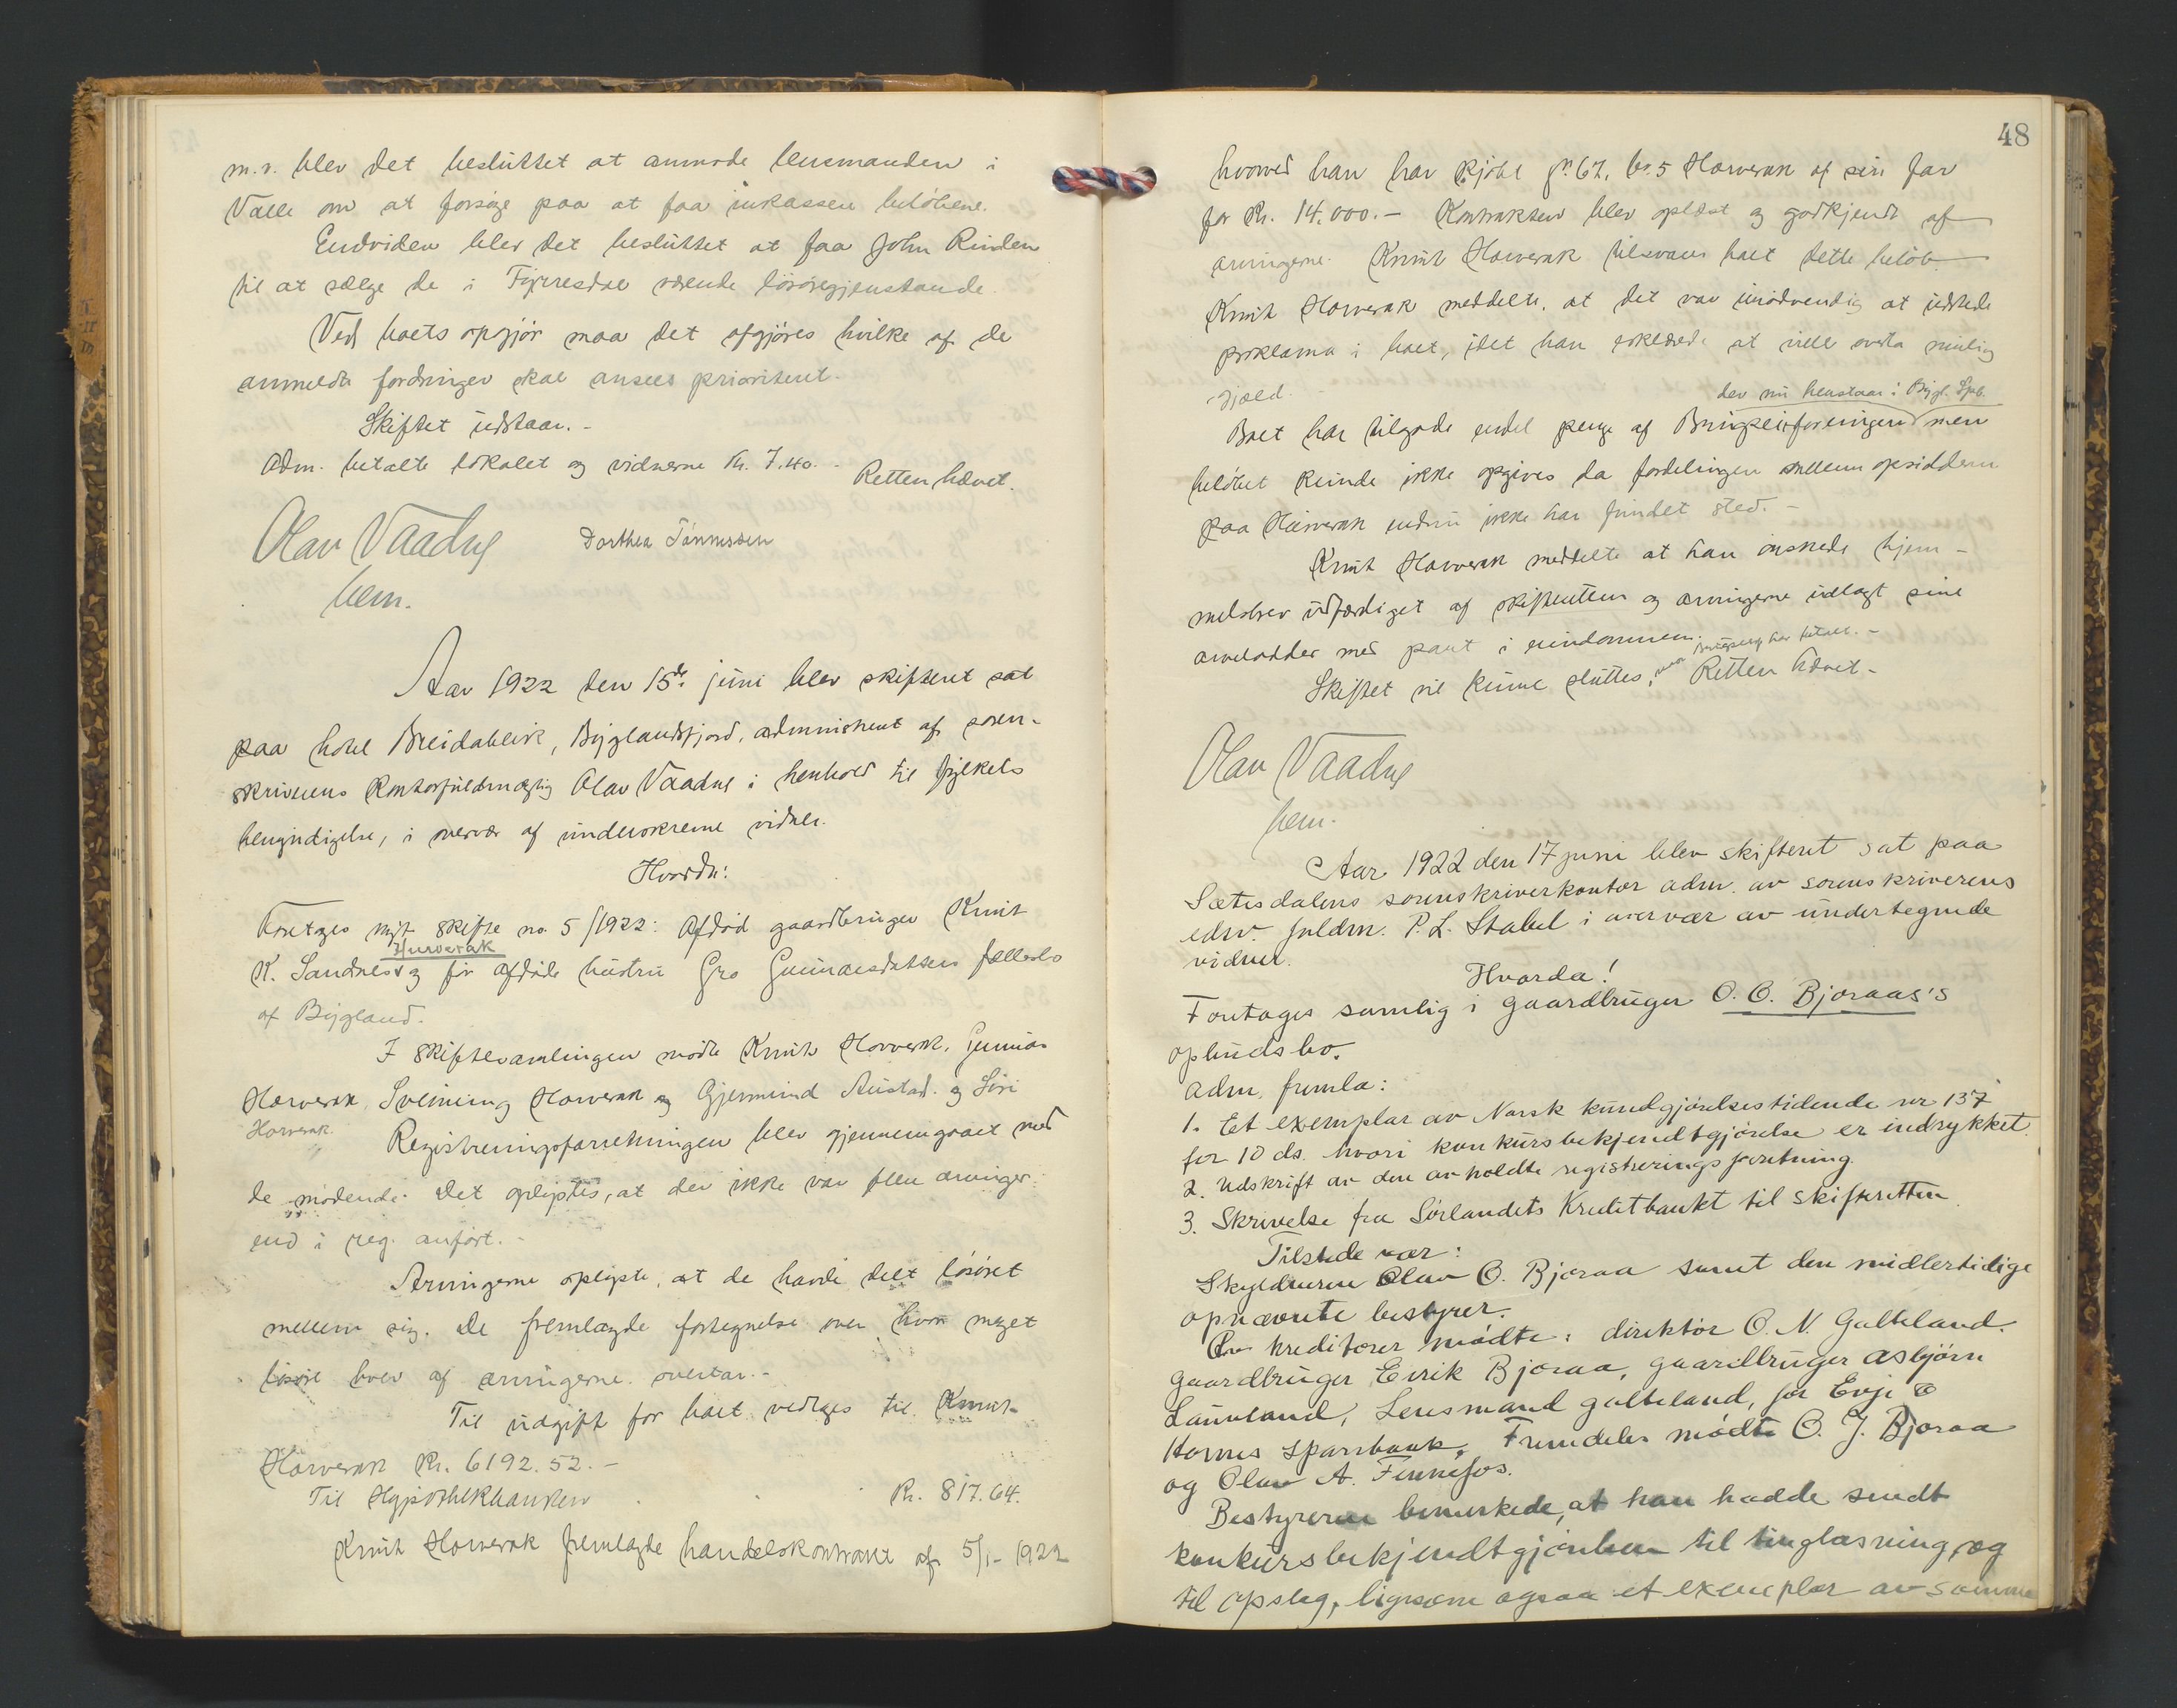 m.v. blev det besluttet at anmode lensmanden i
Valle om at forsøge paa at faa inkassere beløbene.
Endvidere blev det besluttet at faa John Rinden
til at sælge de i Fyrresdal værende løsøregjenstande.
Ved boets opgjør maa det afgjøres hvilke af de
anmeldte fordringer skal ansees prioritert.
Skiftet udstaar. -
Adm. betalte lokalet og vidnerne Kr. 7.40. -
Retten hævet.
Olav Vaadne
bem.
Dorthea Tønnessen
Aar 1922 den 15de juni blev skifteret sat
paa hotel Breidablik, Byglandsfjord, administrert af soren-
skriverens kontorfuldmægtig Olav Vaadne i henhold til fylkets
bemyndigelse, i overvær af underskrevne vidner.
Hvorda:
Foretoges nyt skifte no. 5/1922: Afdød gaardbruger Knut
Hurverak
K. Sandnes og før afdøde hustru Gro Gunnarsdatters fællesbo
af Bygland.
I skiftesamlingen mødte Knut Horverak, Gunnar
Horverak, Sveinung Horverak og Gjermund Austad. og Siri
Horverak.
Registreringsforretningen blev gjennemgaaet med
de mødende. Det oplystes, at der ikke var flere arvinger
end i reg. anført. -
Arvingerne oplyste, at de havde delt løsøret
mellem sig. De fremlagde fortegnelse over hvor meget
løsøre hver af arvingerne overtar. -
Til udgift for boet vedtages til Knut
Horverak Kr. 6192.52. -
Til Hypothekbanken Kr. 817.64.
Knut Horverak fremlagde handelskontrakt af 5/1- 1922
48
hvorved han har kjøbt gr. 67, br. 5 Horverak af sin far
for Kr. 14.000. - Kontrakten blev oplæst og godkjendt af
arvingerne. Knut Horverak tilsvarer boet dette beløb.
Knut Horverak meddelte, at det var unødvendig at udstede
proklama i boet, idet han erklærede at ville overta mulig
gjæld. -
der nu henstaar i Bygl. Spb.
Boet har tilgode endel penge af men
beløbet kunde ikke opgives da fordelingen mellem opsidderne
paa Horverak endnu ikke har fundet sted. -
Knut Horverak meddelte at han ønskede hjem-
melsbrev udfærdiget af skifteretten og arvingerne udlagt sine
arvelodder med pant i eiendommen.
Skiftet vil kunne sluttes, Retten hævet. -
Olav Vaadne
bem.
Aar 1922 den 17 juni blev skifteret sat paa
Sætesdalens sorenskriverkontor adm. av sorenskriverens
edsv. fuldm. P. L. Stabel i overvær av undertegnede
vidner.
Hvorda!
Foretoges samling i gaardbruger O. O. Bjoraas's
opbudsbo.
Adm. fremla:
1. Et exemplar av Norsk kundgjørelsestidende nr 137
for 10 ds. hvori konkursbekjendtgjørelse er indrykket.
2. Udskrift av den avholdte registreringsforretning.
3. Skrivelse fra Sørlandets Kreditbankt til skifteretten.
Tilstede var:
Skyldneren Olav O. Bjoraa samt den midlertidige
opnævnte bestyrer.
Av kreditorer mødte: direktør O. N. Galteland.
gaardbruger Eirik Bjoraa, gaardbruger Asbjørn
Launland, Lensmand Galteland, for Evje &
Hornes sparebank. Fremdeles mødte O. J. Bjoraa
og Olav A. Fennefos.
Bestyreren bemerkede, at han hadde sendt
konkursbekjendtgjørelsen til tinglæsning, og
til opslag, ligesom ogsaa et exemplar av samme